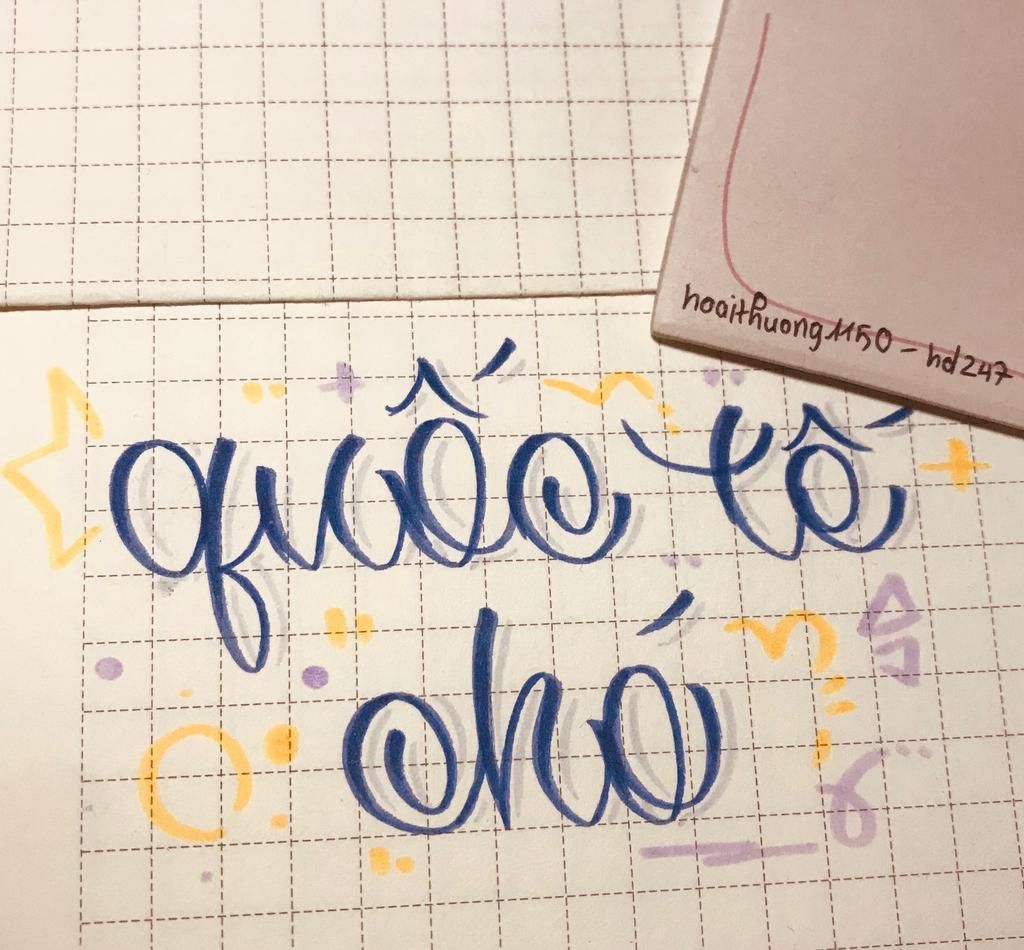 hoaithuong1150 - hd247
quốc tế
chó